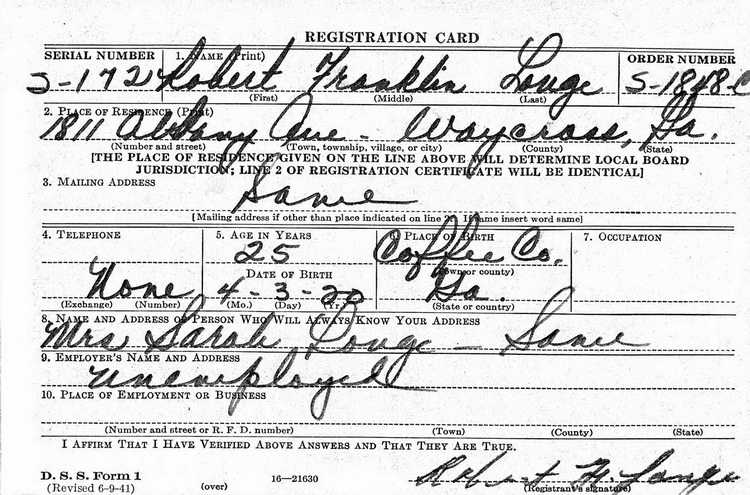 REGISTRATION CARD
SERIAL NUMBER 1. NAME (Print) ORDER NUMBER
S-172 Robert Franklin Longe S-1848-C
(First) (Middle) (Last)
2. PLACE OF RESIDENCE (Print)
1811 Albany Ave - Waycross, Ga.
(Number and street) (Town, township, village, or city) (County) (State)
[THE PLACE OF RESIDENCE GIVEN ON THE LINE ABOVE WILL DETERMINE LOCAL BOARD
JURISDICTION; LINE 2 OF REGISTRATION CERTIFICATE WILL BE IDENTICAL]
3. MAILING ADDRESS
Same
[Mailing address if other than place indicated on line 2. If same insert word same]
4. TELEPHONE 5. AGE IN YEARS 6. PLACE OF BIRTH 7. OCCUPATION
25 Coffee Co.
DATE OF BIRTH (Town or county)
None 4-3-20 Ga.
(Exchange) (Number) (Mo.) (Day) (Yr.) (State or country)
8. NAME AND ADDRESS OF PERSON WHO WILL ALWAYS KNOW YOUR ADDRESS
Mrs Sarah Longe - Same
9. EMPLOYER'S NAME AND ADDRESS
Unemployed
10. PLACE OF EMPLOYMENT OR BUSINESS
(Number and street or R. F. D. number) (Town) (County) (State)
I AFFIRM THAT I HAVE VERIFIED ABOVE ANSWERS AND THAT THEY ARE TRUE.
Robert F. Longe
D. S. S. Form 1 16—21630 (Registrant's signature)
(Revised 6-9-41) (over)